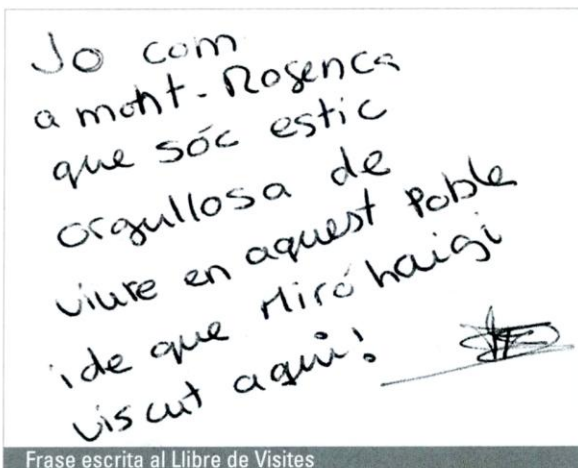 Jo com
a mont-Rosenca
que sóc estic
orgullosa de
viure en aquest poble
i de que Miró haigi
viscut aquí!
Frase escrita al Llibre de Visites